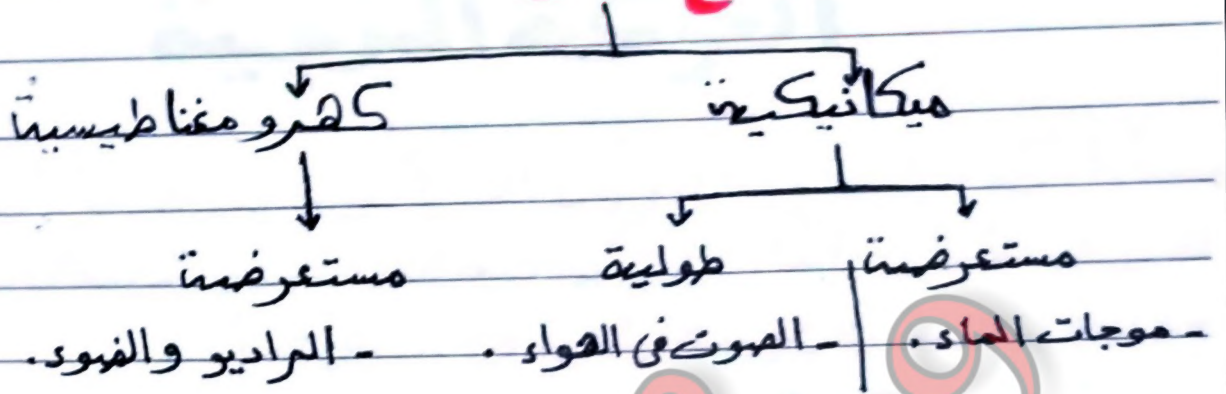 ميكانيكية كهرومغناطيسية
مستعرضة طولية مستعرضة
- موجات الماء. - الصوت في الهواء. - الراديو والضوء.